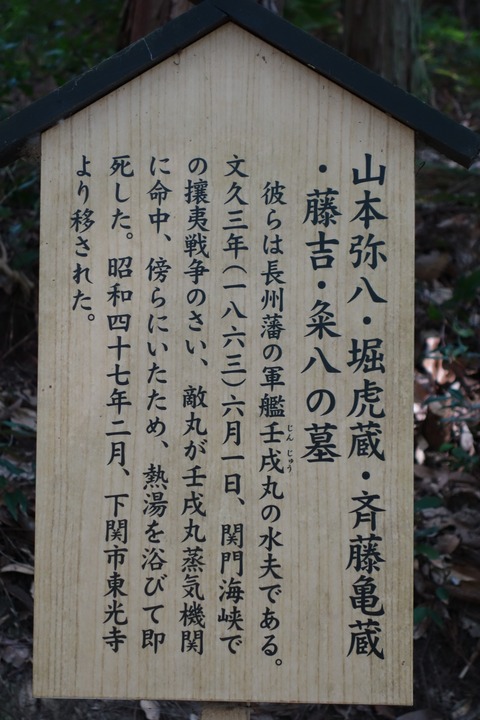 山本弥八・堀虎蔵・斉藤亀蔵
・藤吉・粂八の墓
彼らは長州藩の軍艦壬戌丸の水夫である。
じんじゅう
文久三年（一八六三）六月一日、関門海峡で
の攘夷戦争のさい、敵丸が壬戌丸蒸気機関
に命中、傍らにいたため、熱湯を浴びて即
死した。昭和四十七年二月、下関市東光寺
より移された。